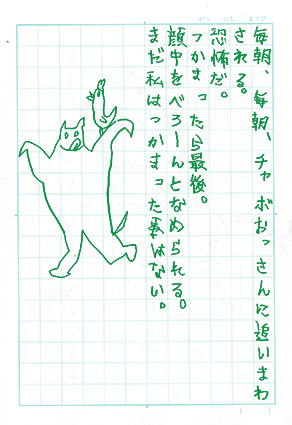 毎朝、毎朝、チャボおっさんに追いまわ
される。
恐怖だ。
つかまったら最後。
顔中をべろーんとなめられる。
まだ私はつかまった事はない。